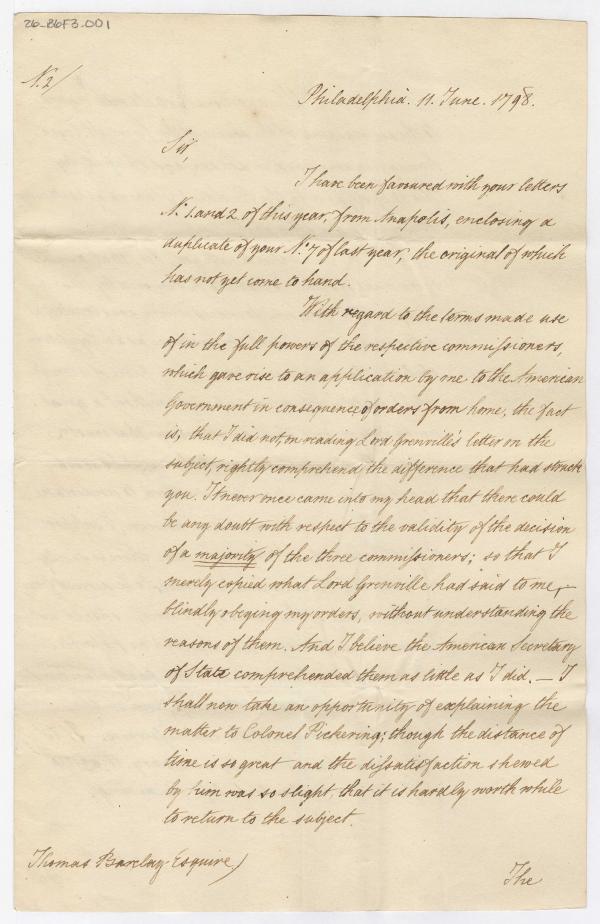 26-86F3.001
N. 2/
Philadelphia. 11. June. 1798.
Sir,
I have been favoured with your letters
N.º 1. and 2 of this year, from Anapolis, enclosing a
duplicate of your N.º 7 of last year, the original of which
has not yet come to hand.
With regard to the terms made use
of in the full powers of the respective commissioners,
which gave rise to an application by me to the American
Government in consequence of orders from home, the fact
is, that I did not, on reading Lord Grenville's letter on the
subject, rightly comprehend the difference that had struck
you. It never once came into my head that there could
be any doubt with respect to the validity of the decision
of a majority of the three commissioners; so that I
merely copied what Lord Grenville had said to me, –
blindly obeying my orders, without understanding the
reasons of them. And I believe the American Secretary
of State comprehended them as little as I did. — I
shall now take an opportunity of explaining the
matter to Colonel Pickering; though the distance of
time is so great and the dissatisfaction shewed
by him was so slight, that it is hardly worth while
to return to the subject.
Thomas Barclay Esquire)
The